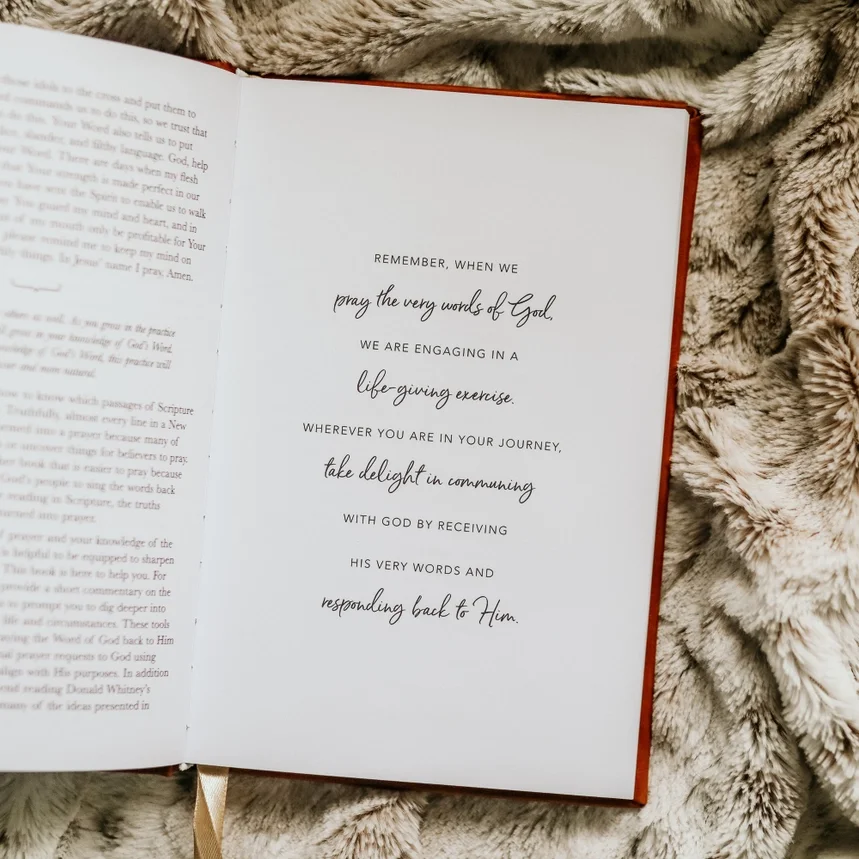 those idols to the cross and put them to
commands us to do this, so we trust that
do this. Your Word also tells us to put
slander, and filthy language. God, help
Your Word. There are days when my flesh
that Your strength is made perfect in our
have sent the Spirit to enable us to walk
You guard my mind and heart, and in
of my mouth only be profitable for Your
please remind me to keep my mind on
things. In Jesus' name I pray, Amen.
others as well. As you grow in the practice
grow in your knowledge of God's Word.
knowledge of God's Word, this practice will
and more natural.
to know which passages of Scripture
Truthfully, almost every line in a New
turned into a prayer because many of
or uncover things for believers to pray.
book that is easier to pray because
God's people to sing the words back
reading in Scripture, the truths
turned into prayer.
prayer and your knowledge of the
is helpful to be equipped to sharpen
This book is here to help you. For
provide a short commentary on the
to prompt you to dig deeper into
life and circumstances. These tools
the Word of God back to Him
prayer requests to God using
align with His purposes. In addition
reading Donald Whitney's
many of the ideas presented in
REMEMBER, WHEN WE
pray the very words of God,
WE ARE ENGAGING IN A
life-giving exercise.
WHEREVER YOU ARE IN YOUR JOURNEY,
take delight in communing
WITH GOD BY RECEIVING
HIS VERY WORDS AND
responding back to Him.